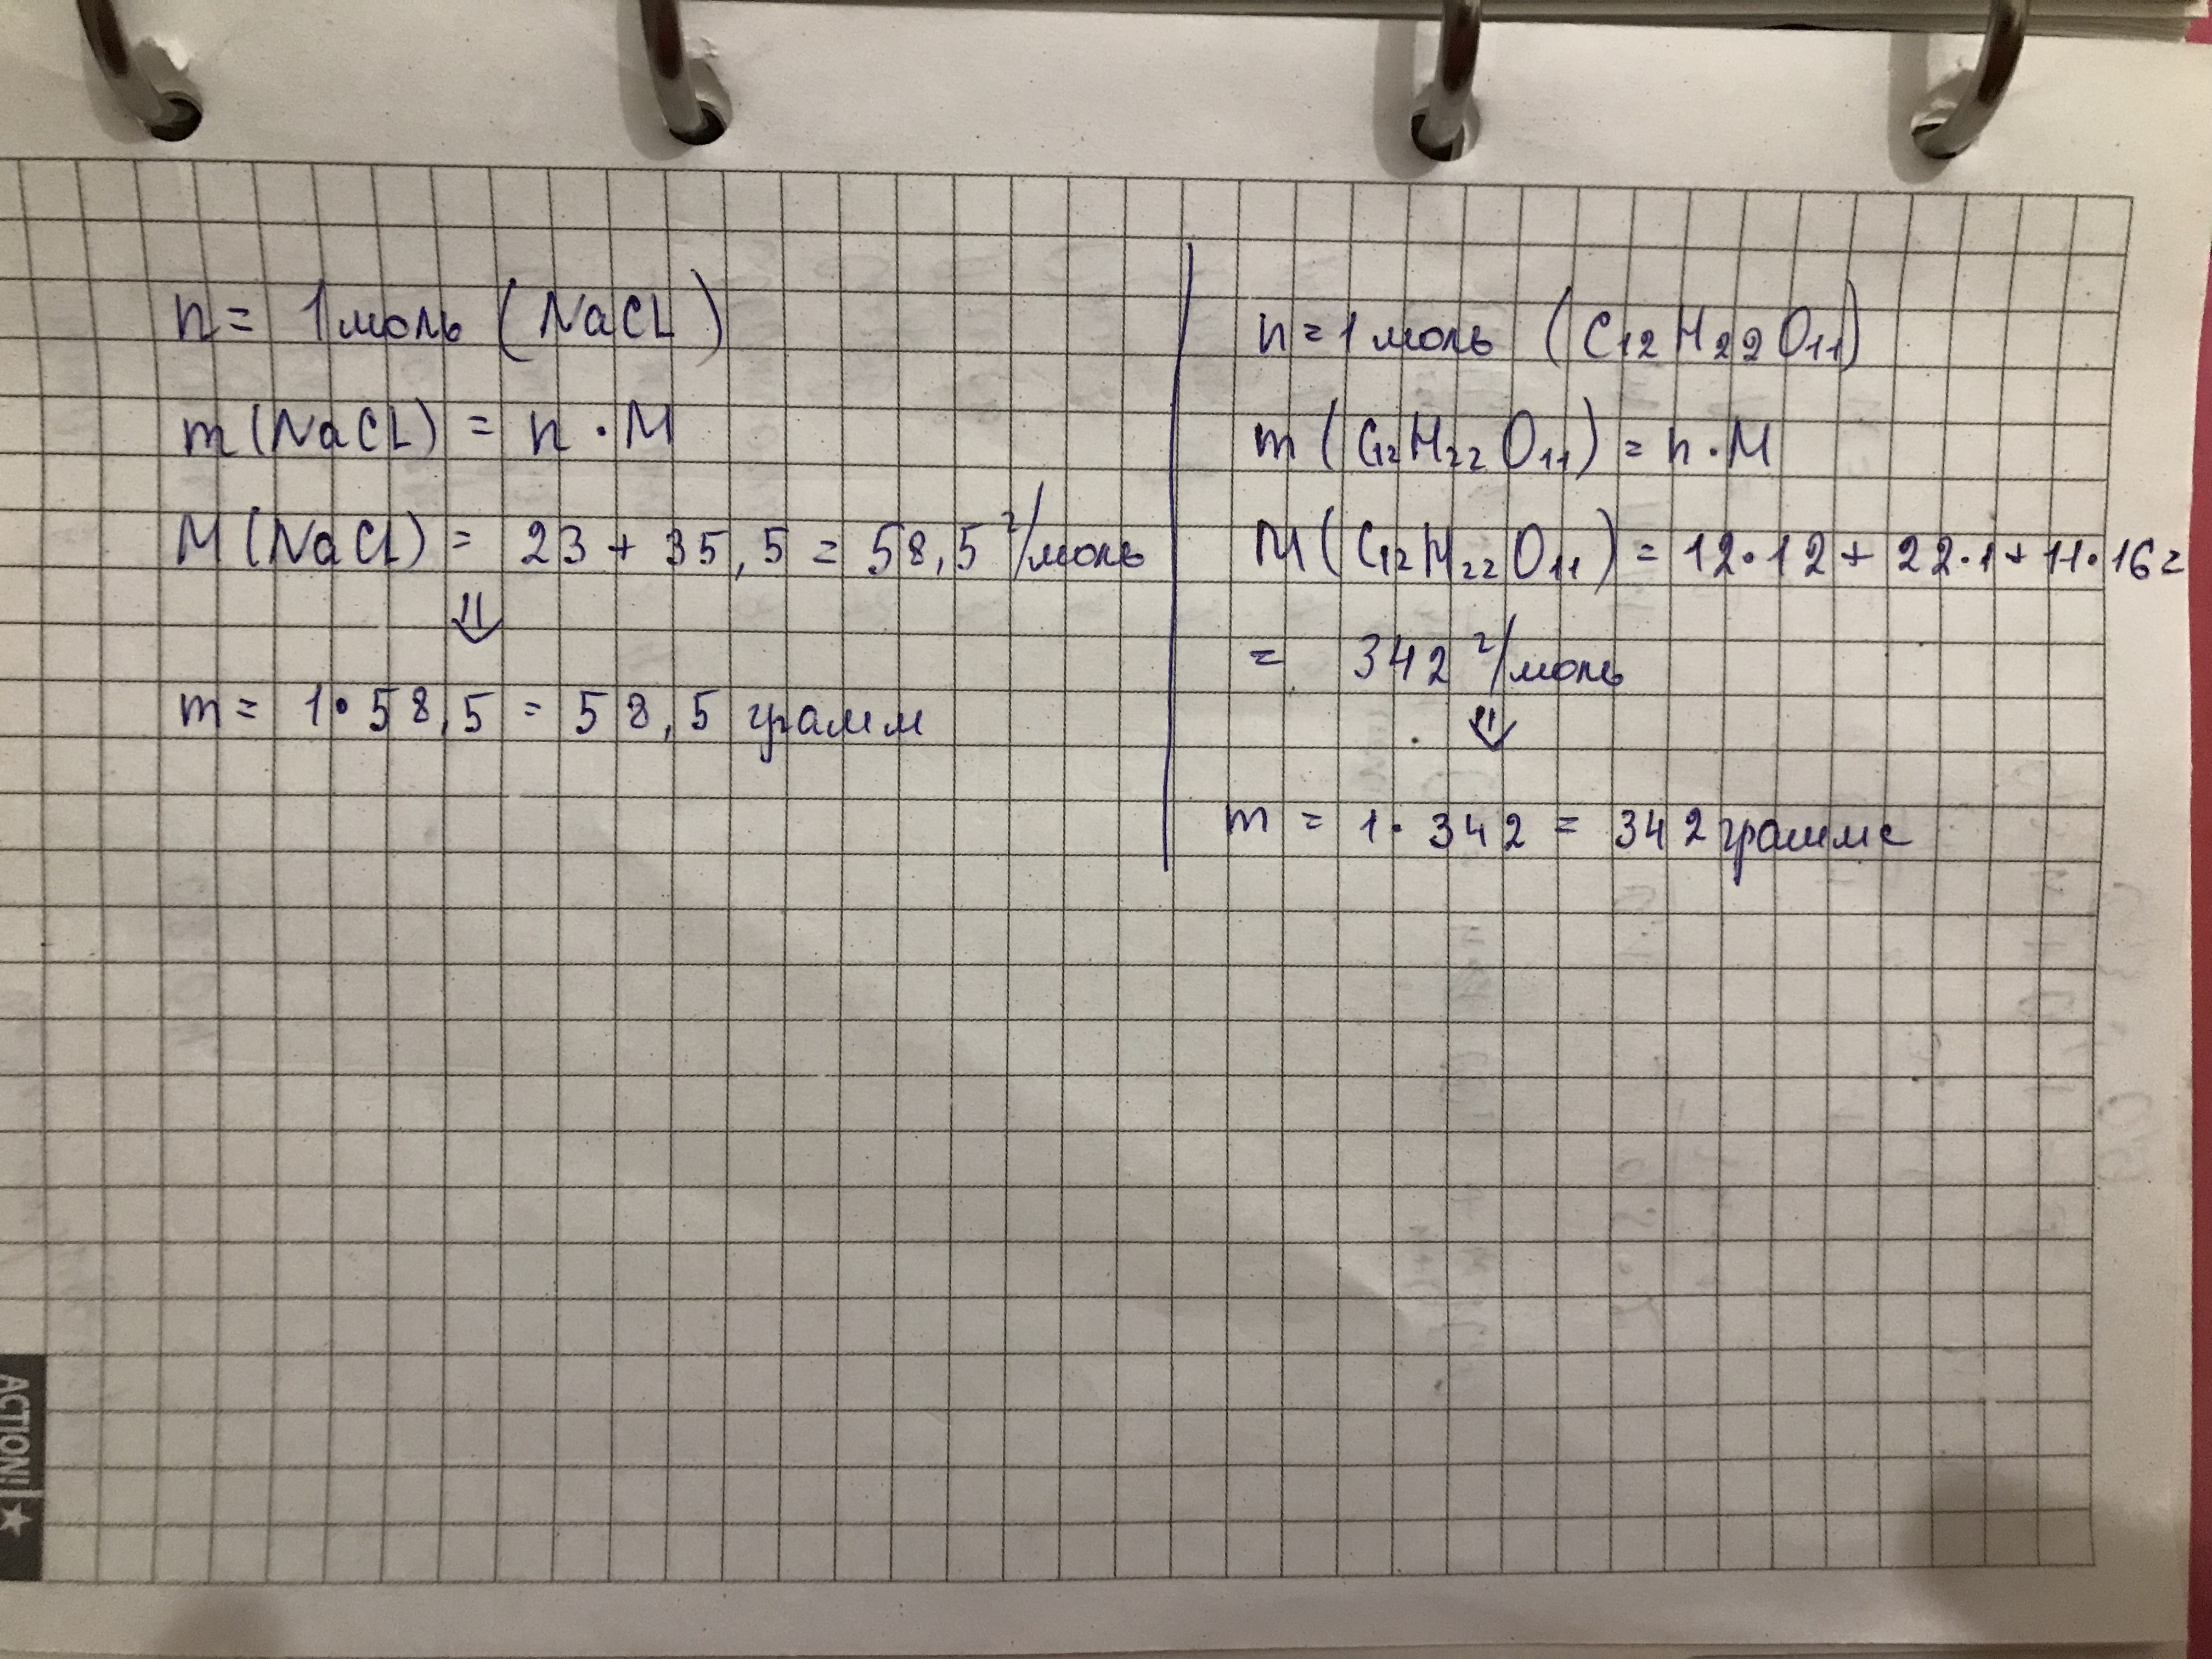 n = 1 моль (NaCL)
m (NaCL) = n · M
M (NaCL) = 23 + 35,5 = 58,5 г/моль
⇓
m = 1 · 58,5 = 58,5 грамм
n = 1 моль (C₁₂H₂₂O₁₁)
m (C₁₂H₂₂O₁₁) = n · M
M (C₁₂H₂₂O₁₁) = 12·12 + 22·1 + 11·16 =
= 342 г/моль
⇓
m = 1 · 342 = 342 грамма
ACTION! ★